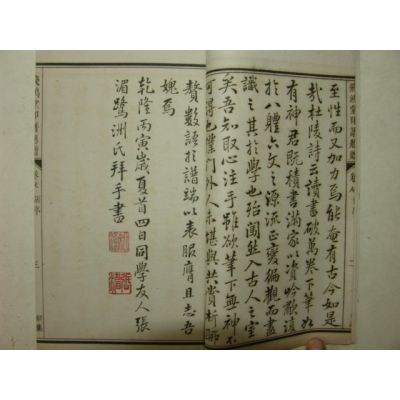 至性而又加力焉能奄有古今如是
哉杜陵詩云讀書破萬卷下筆如
有神君既積書滿家以資吟讀
於八體六文之源流正變徧觀而盡
識之其於學也殆闖然入古人之室
矣吾知取心注手雖欲筆下無神不
可得也僕門外人未堪與共賞析聊
贅數語於譜端以表服膺且志吾
媿焉
乾隆丙寅歲夏首四日同學友人張
湄鷺洲氏拜手書
三